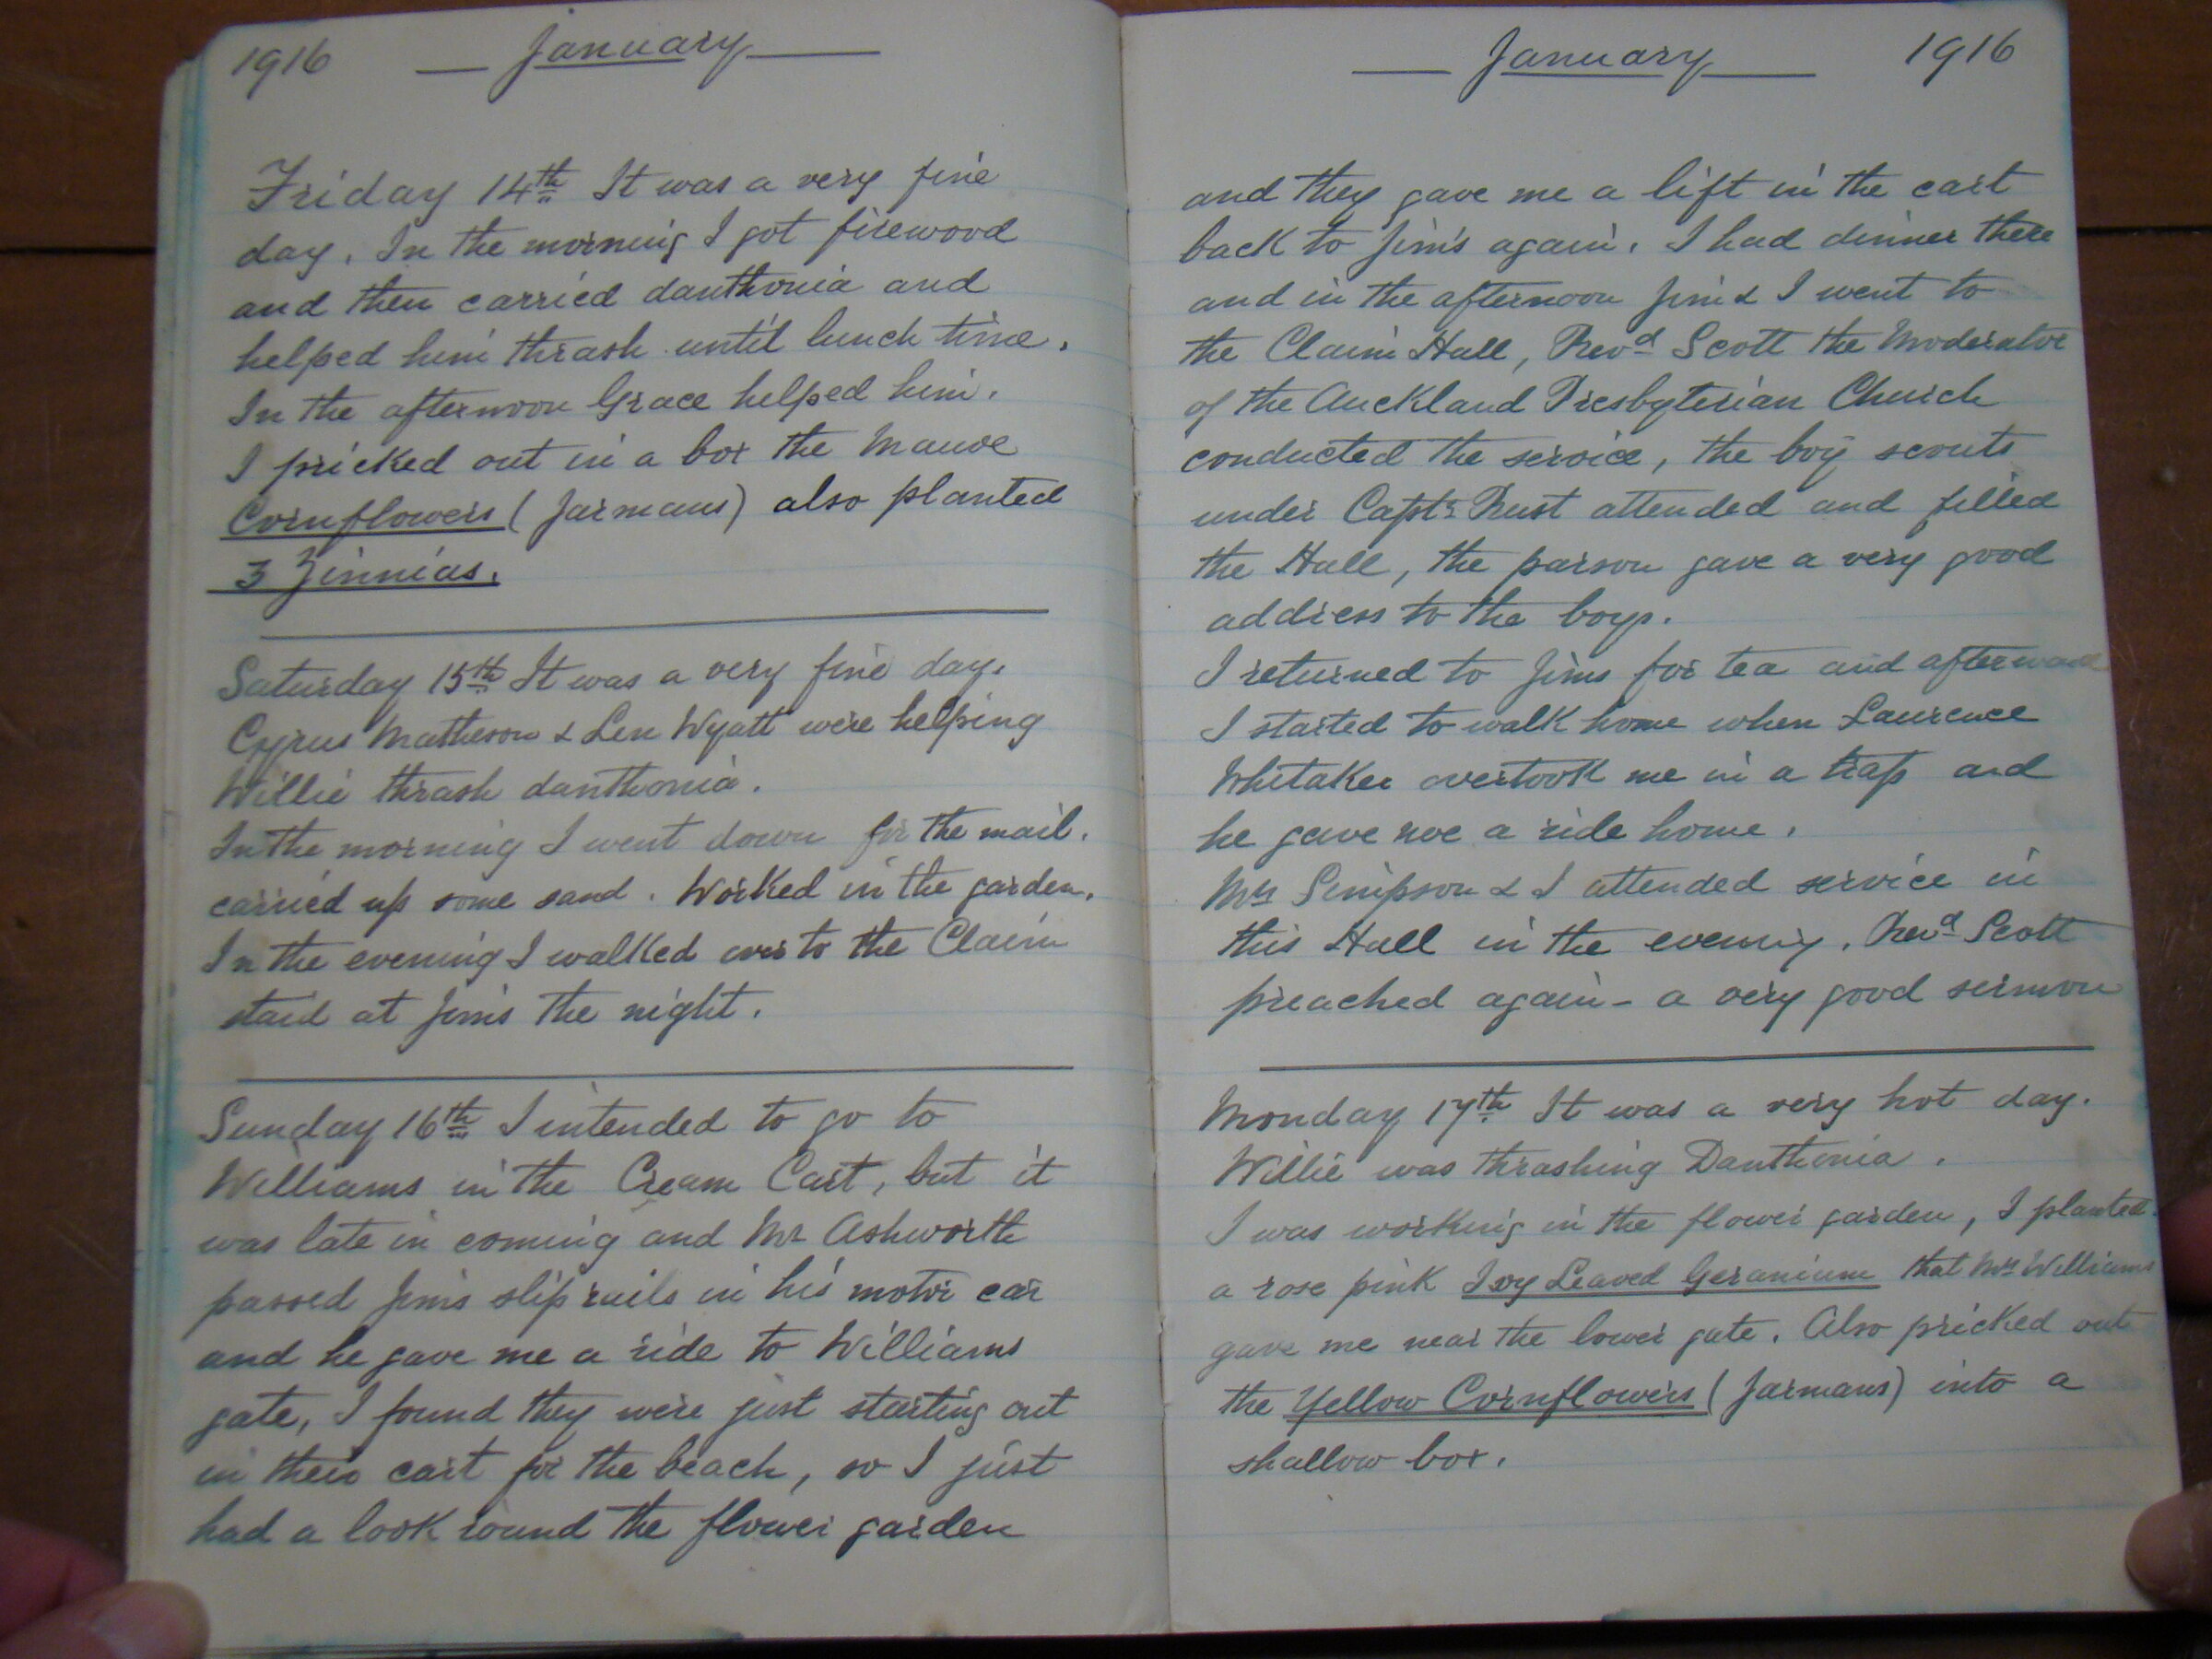 1916 — January —
Friday 14th It was a very fine
day. In the morning I got firewood
and then carried danthonia and
helped him thrash until lunch time.
In the afternoon Grace helped him.
I pricked out in a box the Mauve
Cornflowers (Jarmans) also planted
3 Zinnias.
Saturday 15th It was a very fine day.
Cyrus Matheson & Len Wyatt were helping
Willie thrash danthonia.
In the morning I went down for the mail.
carried up some sand. Worked in the garden.
In the evening I walked over to the Claim
staid at Jims the night.
Sunday 16th I intended to go to
Williams in the Cream Cart, but it
was late in coming and Mr Ashworth
passed Jims slip rails in his motor car
and he gave me a ride to Williams
gate, I found they were just starting out
in their cart for the beach, so I just
had a look round the flower garden
— January — 1916
and they gave me a lift in the cart
back to Jim's again. I had dinner there
and in the afternoon Jim & I went to
the Claim Hall, Revd Scott the Moderator
of the Auckland Presbyterian Church
conducted the service, the boy scouts
under Captn Rust attended and filled
the Hall, the parson gave a very good
address to the boys.
I returned to Jims for tea and afterward
I started to walk home when Laurence
Whitaker overtook me in a trap and
he gave me a ride home.
Mrs Simpson & I attended service in
this Hall in the evening. Revd Scott
preached again - a very good sermon
Monday 17th It was a very hot day.
Willie was thrashing Danthonia.
I was working in the flower garden, I planted
a rose pink Ivy Leaved Geranium that Mrs Williams
gave me near the lower gate. Also pricked out
the Yellow Cornflowers (Jarmans) into a
shallow box.